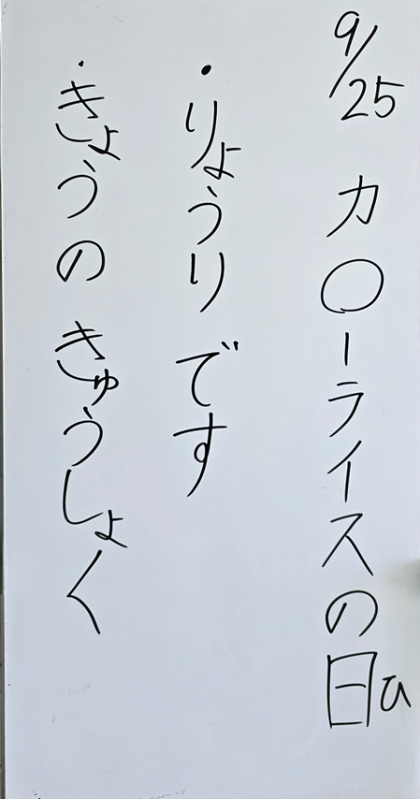 9/25 カ〇ーライスの日ひ
・りょうりです
・きょうの きゅうしょく